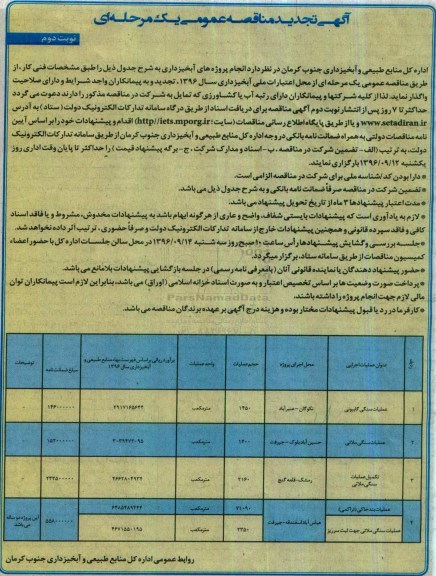 آگهی تجدید مناقصه عمومی یک مرحله‌ای
نوبت دوم
اداره کل منابع طبیعی و آبخیزداری جنوب کرمان در نظر دارد انجام پروژه های آبخیزداری به شرح جدول ذیل را طبق مشخصات فنی کار، از
طریق مناقصه عمومی یک مرحله ای از محل اعتبارات ملی آبخیزداری سال ۱۳۹۶، تجدید و به پیمانکاران واجد شرایط و دارای صلاحیت
واگذار نماید. لذا از کلیه شرکتها و پیمانکاران دارای رتبه آب یا کشاورزی که تمایل به شرکت در مناقصه مذکور را دارند دعوت می گردد
حداکثر تا ۷ روز پس از انتشار نوبت دوم آگهی مناقصه برای دریافت اسناد از طریق درگاه سامانه تدارکات الکترونیک دولت (ستاد) به آدرس
www.setadiran.ir و یا از طریق پایگاه اطلاع رسانی مناقصات (سایت: http//iets.mporg.ir) اقدام و پیشنهادات خود را بر اساس آیین
نامه مناقصات دولتی به همراه ضمانت نامه بانکی در وجه اداره کل منابع طبیعی و آبخیزداری جنوب کرمان از طریق سامانه تدارکات الکترونیک
دولت، به ترتیب (الف - تضمین شرکت در مناقصه، ب - اسناد و مدارک شرکت، ج - برگه پیشنهاد قیمت) را حداکثر تا پایان وقت اداری روز
یکشنبه ۱۳۹۶/۰۹/۱۲ بارگزاری نمایند.
*دارا بودن کد /شناسه ملی برای شرکت در مناقصه الزامی است.
*تضمین شرکت در مناقصه صرفاً ضمانت نامه بانکی و به شرح جدول ذیل می باشد.
*مدت اعتبار پیشنهادها ۳ ماه از تاریخ تحویل پیشنهاد می باشد.
*لازم به یادآوری است که پیشنهادات بایستی شفاف، واضح و عاری از هر گونه ابهام باشد به پیشنهادات مخدوش، مشروط و یا فاقد اسناد
کافی و فاقد سپرده قانونی و همچنین پیشنهادات خارج از سامانه تدارکات الکترونیک دولت و صرفاً حضوری، ترتیب اثر داده نخواهد شد.
*جلسه بررسی و گشایش پیشنهادها رأس ساعت ۱۰ صبح روز سه شنبه ۱۳۹۶/۰۹/۱۴ در محل سالن جلسات اداره کل با حضور اعضاء
کمیسیون مناقصات از طریق سامانه ستاد برگزار میگردد.
*حضور پیشنهاد دهندگان یا نماینده قانونی آنان (با معرفی نامه رسمی) در جلسه بازگشایی پیشنهادات بلامانع می باشد.
*پرداخت صورت وضعیت ها بر اساس تخصیص اعتبار و به صورت اسناد خزانه اسلامی (اوراق) می باشد، بنابراین لازم است پیمانکاران توان
مالی لازم جهت انجام پروژه را داشته باشند.
*کارفرما در رد یا قبول پیشنهادات مختار بوده و هزینه درج آگهی بر عهده برندگان مناقصه می باشد.
عنوان عملیات اجرایی محل اجرای پروژه حجم عملیات واحد عملیات برآورد ریالی بر اساس فهرست بهاء منابع طبیعی و آبخیزداری سال ۱۳۹۶ مبلغ ضمانت نامه توضیحات
۱ عملیات سنگی گابیونی ۱۲۵۰ مترمکعب
۲ عملیات سنگی ملاتی ۱۲۰۰ مترمکعب
۳ تکمیل عملیات سنگی ملاتی رمشک - قلعه گنج ۲۱۶۰ مترمکعب
۴ عملیات بند خاکی (تراکمی) ۲۱۰۹۰ مترمکعب
عملیات سنگی ملاتی جهت تثبیت سرریز ۲۳۵۰ مترمکعب
روابط عمومی اداره کل منابع طبیعی و آبخیزداری جنوب کرمان